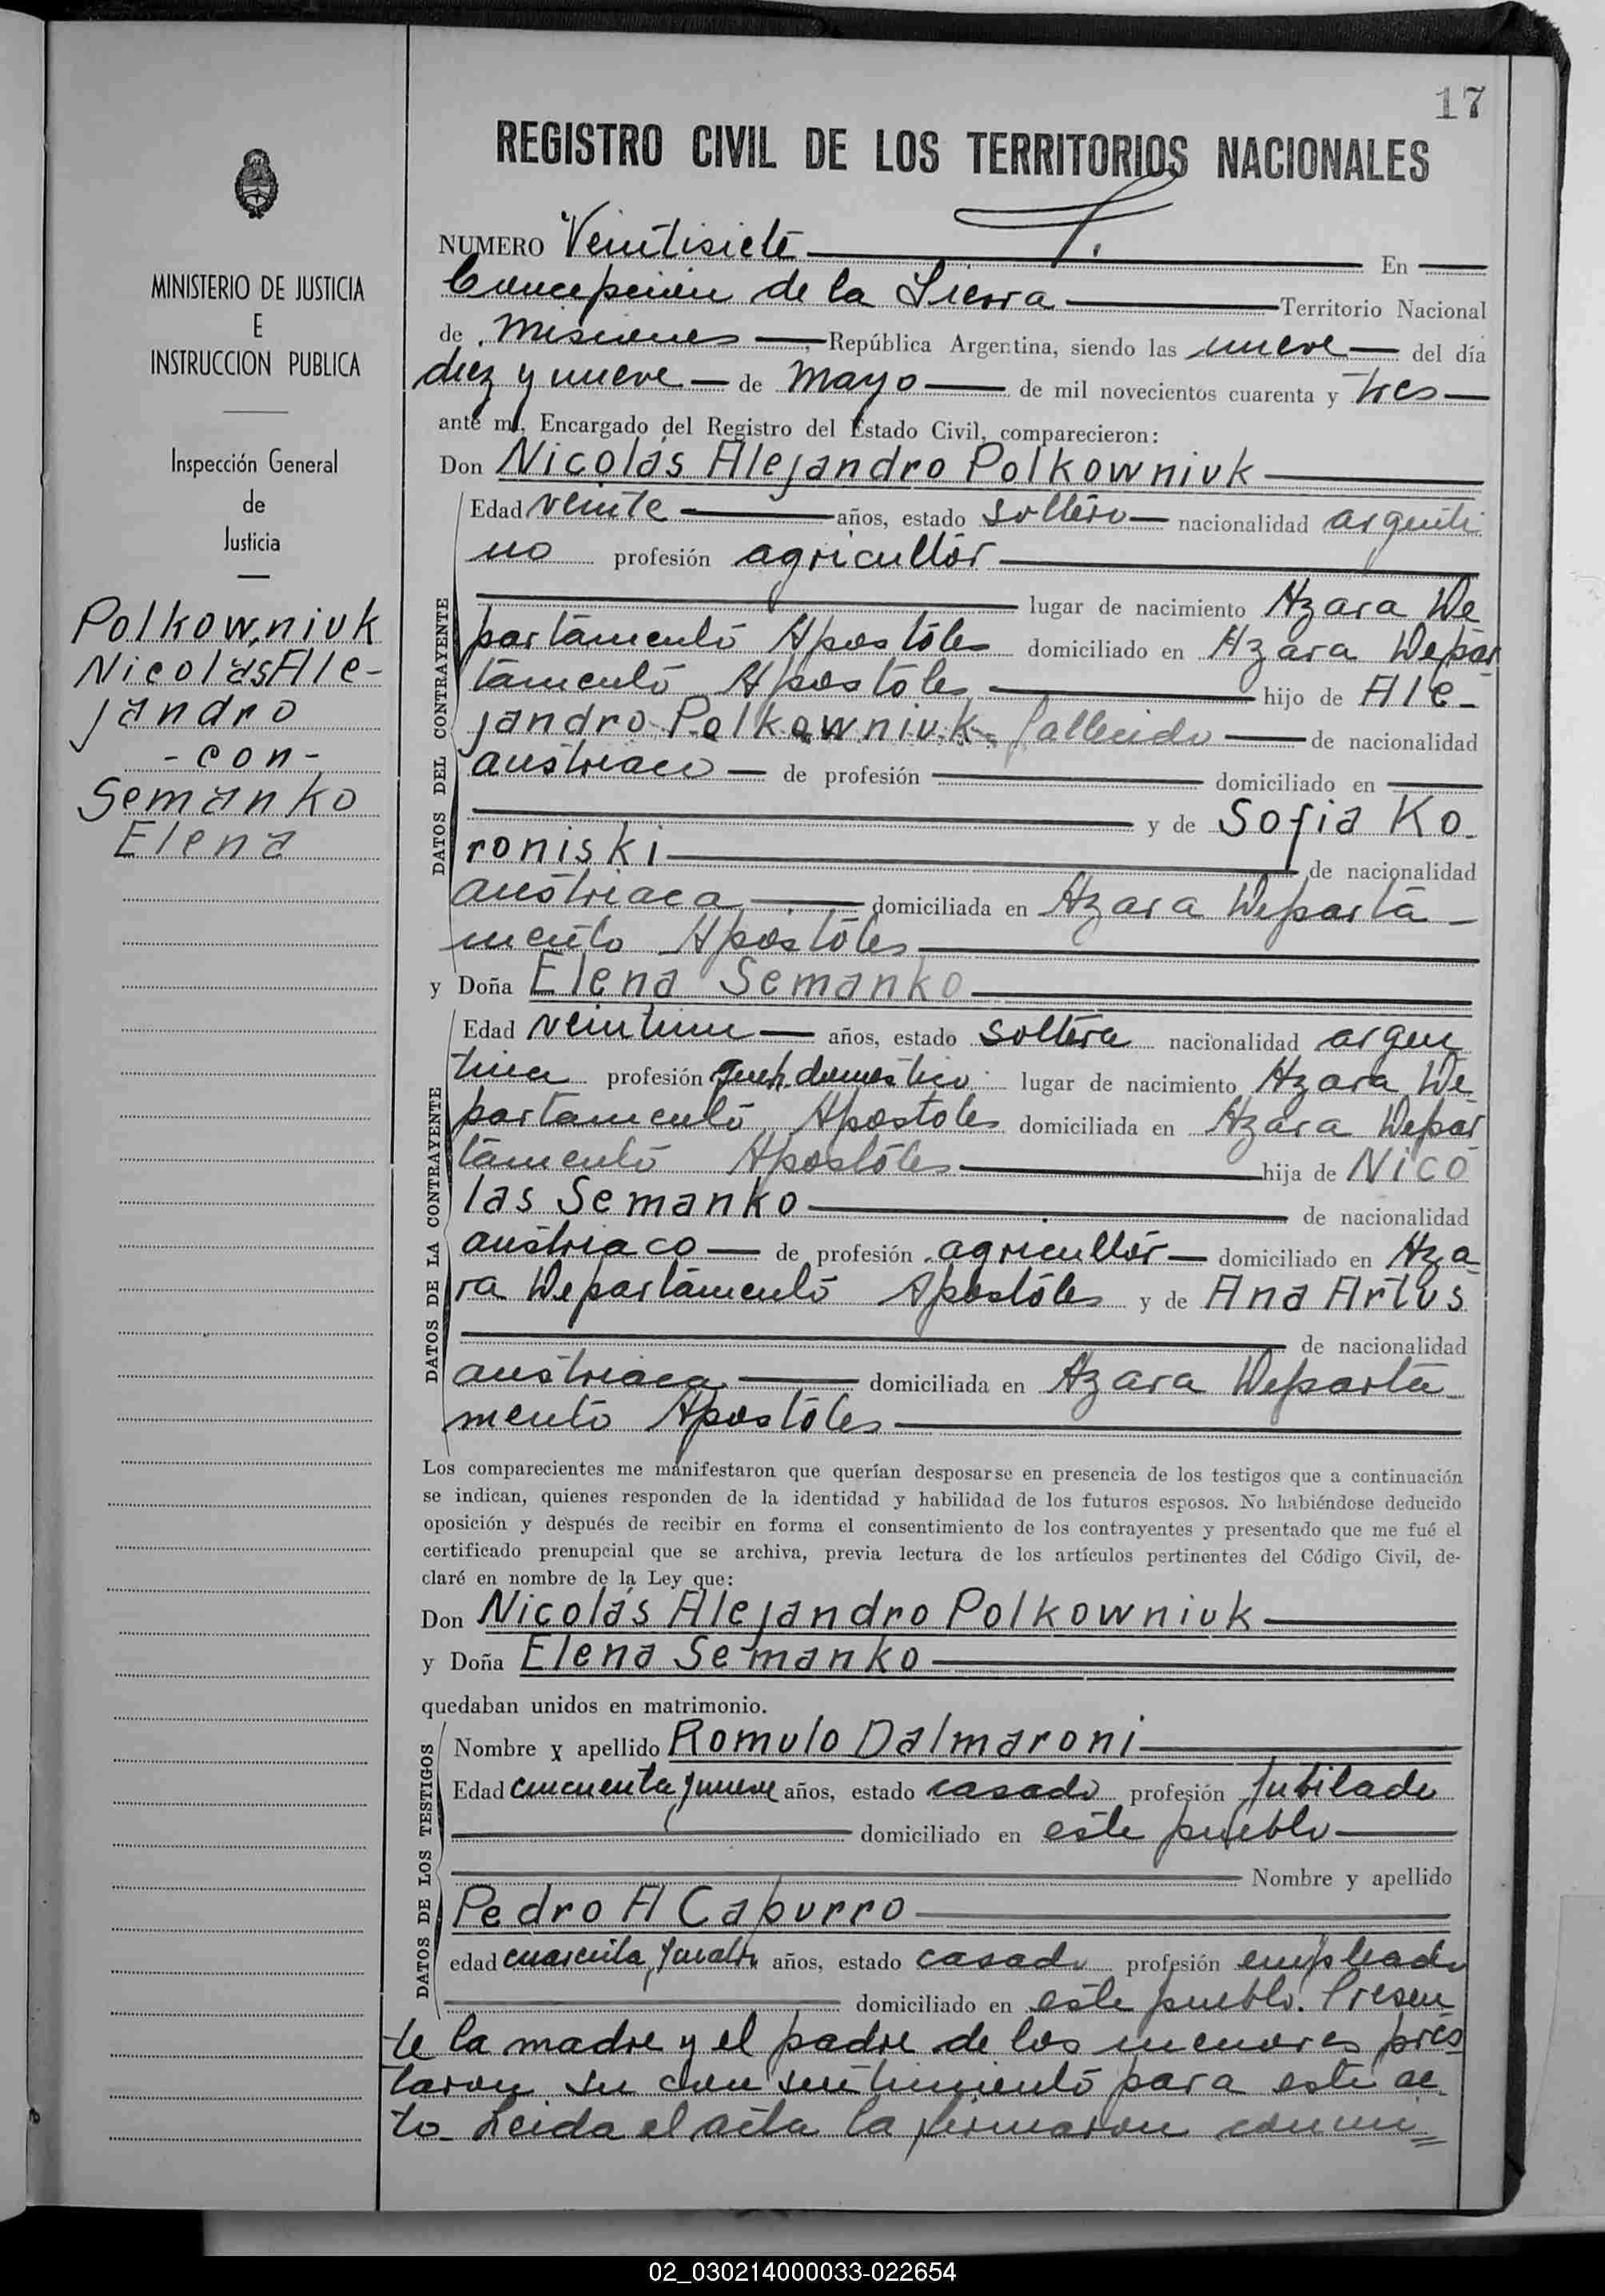 17
REGISTRO CIVIL DE LOS TERRITORIOS NACIONALES
MINISTERIO DE JUSTICIA
E
INSTRUCCION PUBLICA
Inspección General
de
Justicia
Polkowniuk
Nicolás Ale-
jandro
- con -
Semanko
Elena
NUMERO Veintisiete En
Concepción de la Sierra Territorio Nacional
de Misiones República Argentina, siendo las nueve del día
diez y nueve de Mayo de mil novecientos cuarenta y tres
ante mí, Encargado del Registro del Estado Civil, comparecieron:
Don Nicolás Alejandro Polkowniuk
DATOS DEL CONTRAYENTE
Edad veinte años, estado soltero nacionalidad argenti
no profesión agricultor
lugar de nacimiento Azara De
partamento Apostoles domiciliado en Azara Depar
tamento Apostoles hijo de Ale-
jandro Polkowniuk fallecido de nacionalidad
austriaco de profesión domiciliado en
y de Sofia Ko-
roniski de nacionalidad
austriaca domiciliada en Azara Departa-
mento Apostoles
y Doña Elena Semanko
DATOS DE LA CONTRAYENTE
Edad veintiun años, estado soltera nacionalidad argen
tina profesión Queh. domestico lugar de nacimiento Azara De
partamento Apostoles domiciliada en Azara Depar
tamento Apostoles hija de Nico
las Semanko de nacionalidad
austriaco de profesión agricultor domiciliado en Aza-
ra Departamento Apostoles y de Ana Artus
de nacionalidad
austriaca domiciliada en Azara Departa-
mento Apostoles
Los comparecientes me manifestaron que querían desposarse en presencia de los testigos que a continuación
se indican, quienes responden de la identidad y habilidad de los futuros esposos. No habiéndose deducido
oposición y después de recibir en forma el consentimiento de los contrayentes y presentado que me fué el
certificado prenupcial que se archiva, previa lectura de los artículos pertinentes del Código Civil, de-
claré en nombre de la Ley que:
Don Nicolás Alejandro Polkowniuk
y Doña Elena Semanko
quedaban unidos en matrimonio.
DATOS DE LOS TESTIGOS
Nombre y apellido Romulo Dalmaroni
Edad cincuenta y nueve años, estado casado profesión Jubilado
domiciliado en este pueblo
Nombre y apellido
Pedro A Capurro
edad cuarenta y cuatro años, estado casado profesión empleado
domiciliado en este pueblo. Presen-
te la madre y el padre de los menores pres
taron su consentimiento para este ac
to_ Leida el acta la firmaron conmi=
02_030214000033-022654